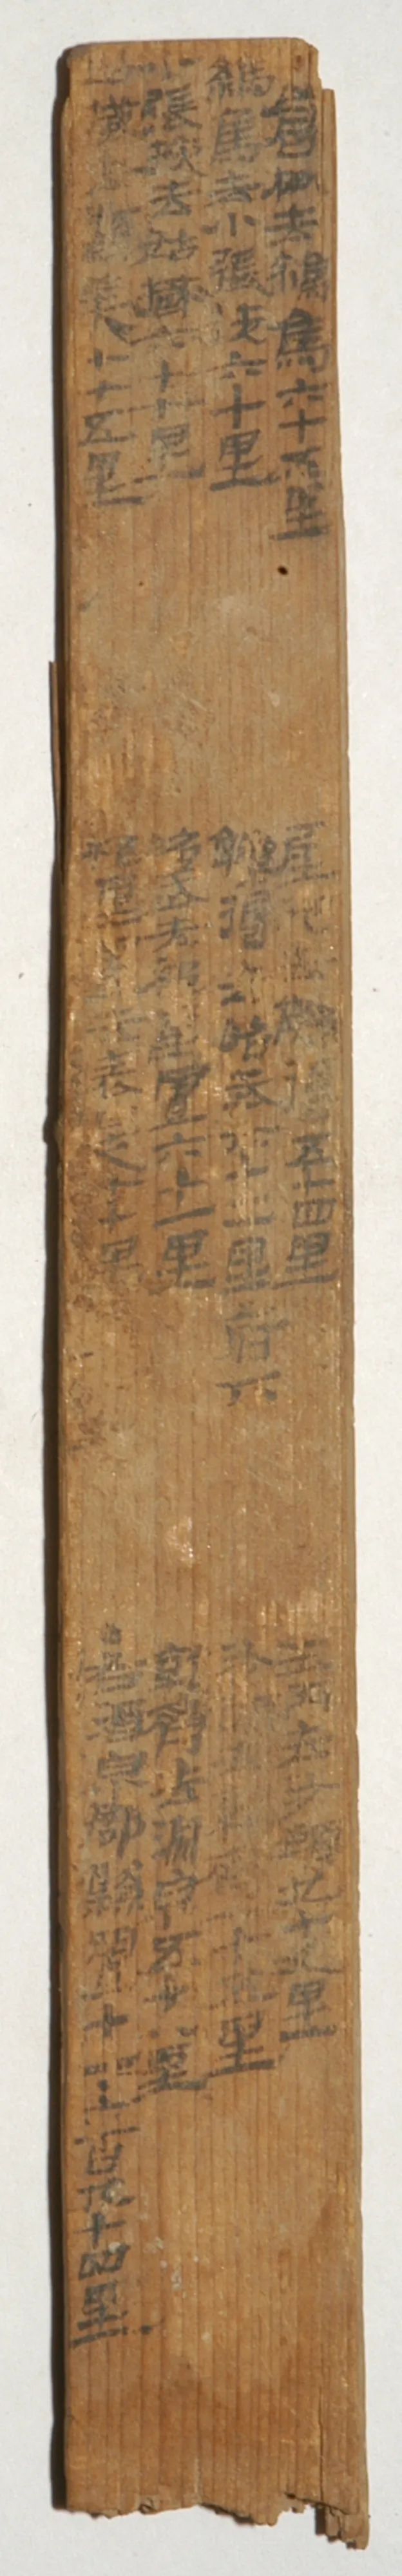 倉松去鸞鳥六十五里
鸞鳥去小張掖六十里
小張掖去姑臧六十七里
姑臧去顯美七十五里
氐池去觻得五十四里
觻得去昭武六十二里府下
昭武去祁連置六十一里
祁連置去表是七十里
玉門去沙頭九十九里
沙頭去乾齊八十五里
乾齊去淵泉五十八里
·右酒泉郡縣置十一·六百九十四里